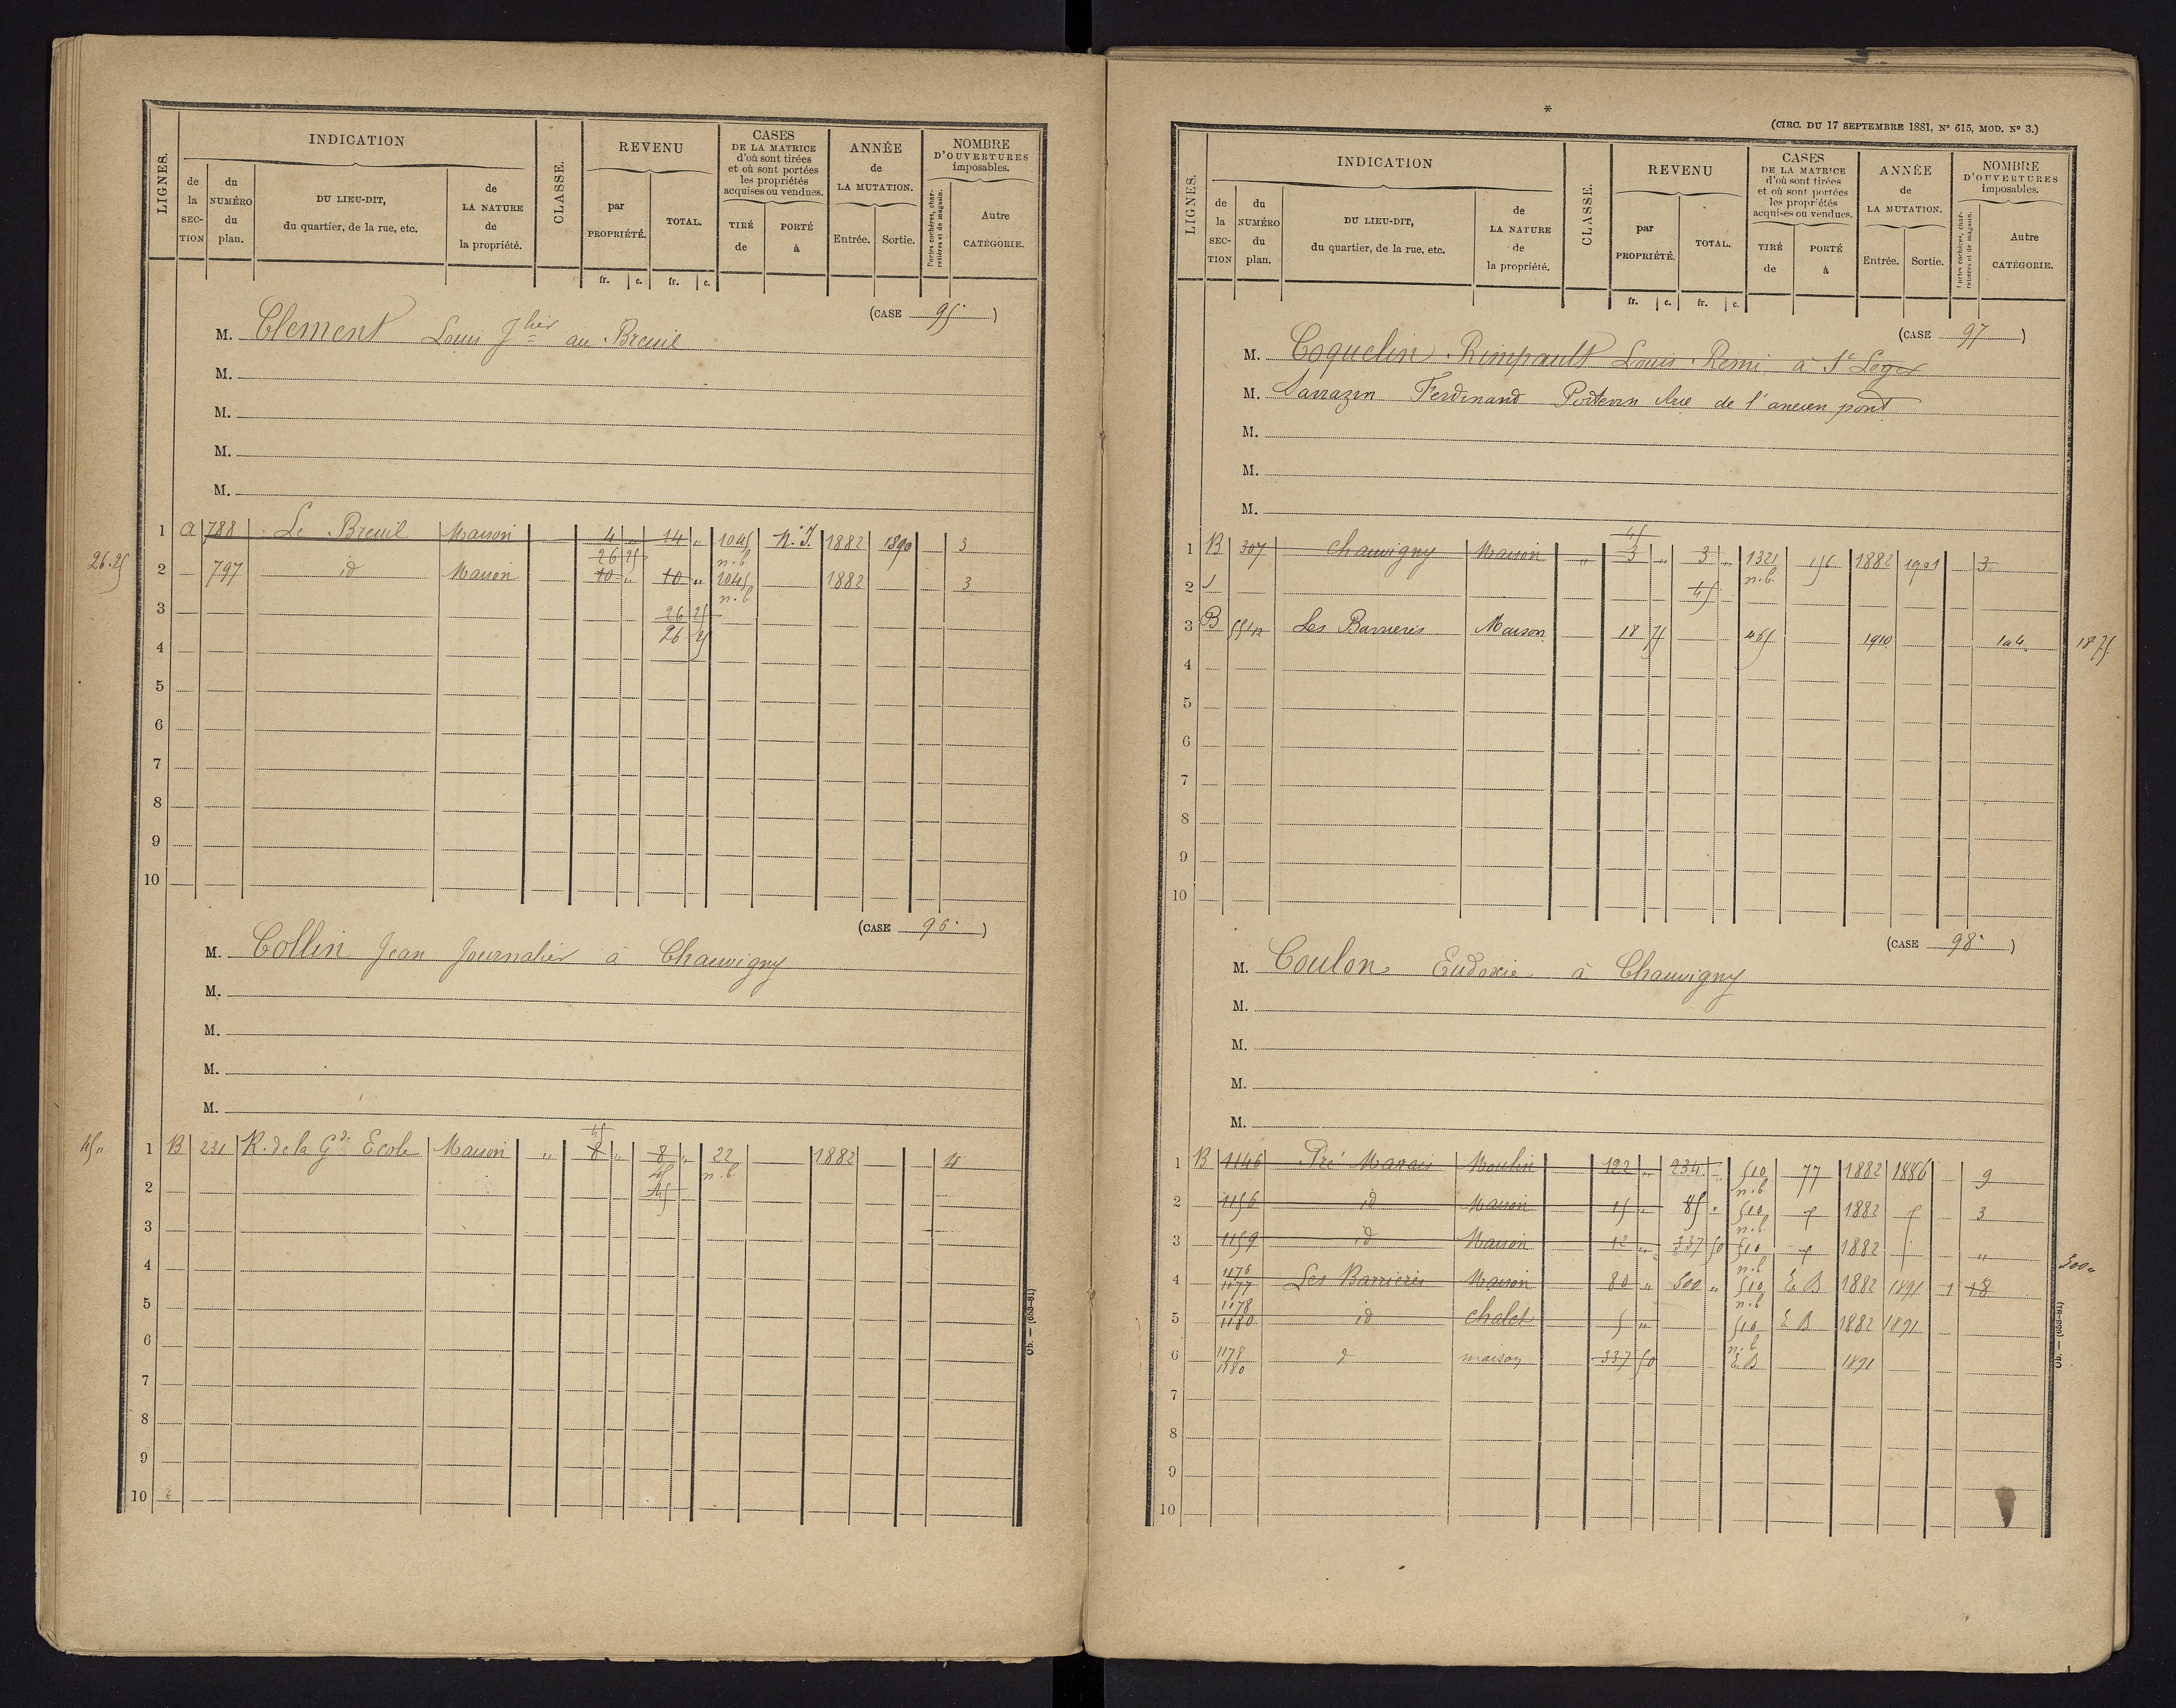 LIGNES.
INDICATION
de la SECTION
du NUMÉRO du plan.
DU LIEU-DIT, du quartier, de la rue, etc.
de LA NATURE de la propriété.
CLASSE.
REVENU
par PROPRIÉTÉ.
TOTAL.
CASES DE LA MATRICE d'où sont tirées et où sont portées les propriétés acquises ou vendues.
TIRÉ de
PORTÉ à
ANNÉE de LA MUTATION.
Entrée.
Sortie.
NOMBRE D'OUVERTURES imposables.
Portes cochères, charretières et de magasin.
Autre CATÉGORIE.
fr. c. fr. c.
(CASE 95.)
M. Clement Louis Jlier au Breuil
M.
M.
M.
M.
1 a 788 Le Breuil Maison 4 " 14 " 1045 n.b. N.I. 1882 1890 3
26.25 2 797 id Maison 26 25 10 " 10 " 1045 n.b. 1882 3
3 26 25
26 25
4
5
6
7
8
9
10
(CASE 96.)
M. Collin Jean Journalier à Chauvigny
M.
M.
M.
M.
45 " 1 B 231 R. de la Gde Ecole Maison " 45 8 " 8 " 22 n.b. 1882
2 45
45
3
4
5
6
7
8
9
10
Ob. — (653-81)
*
(CIRC. DU 17 SEPTEMBRE 1881, N° 615, MOD. N° 3.)
LIGNES.
INDICATION
de la SECTION
du NUMÉRO du plan.
DU LIEU-DIT, du quartier, de la rue, etc.
de LA NATURE de la propriété.
CLASSE.
REVENU
par PROPRIÉTÉ.
TOTAL.
CASES DE LA MATRICE d'où sont tirées et où sont portées les propriétés acquises ou vendues.
TIRÉ de
PORTÉ à
ANNÉE de LA MUTATION.
Entrée.
Sortie.
NOMBRE D'OUVERTURES imposables.
Portes cochères, charretières et de magasin.
Autre CATÉGORIE.
fr. c. fr. c.
(CASE 97)
M. Coquelin Rimpault Louis Remi à St Leger
M. Sarrazin Ferdinand Poitevin Rue de l'ancien pont
M.
M.
M.
1 B 307 Chauvigny Maison " 45 3 " 3 " 1321 n.b. 156 1882 1901 3
2 45
3 B 554p Les Barrieres Maison 18 75 465 1910 1a4. 18 75.
4
5
6
7
8
9
10
(CASE 98.)
M. Coulon Eudoxie à Chauvigny
M.
M.
M.
M.
1 B 1146 Pré Marais Moulin 122 " 234 " 510 n.b 77 1882 1886 9
2 1156 id Maison 15 " 85 " 510 n.b. 1882 3
3 1159 id Maison 12 " 337 50 510 n.b 1882 "
4 1176 1177 Les Barrieres Maison 80 " 500 " 510 n.b E B 1882 1891 1 18 500 "
5 1178 1180 id Chalet 5 " 510 n.b. E B 1882 1891
6 1178 1180 d maison 337 50 E.B 1891
7
8
9
10
Ob. — (653-81)